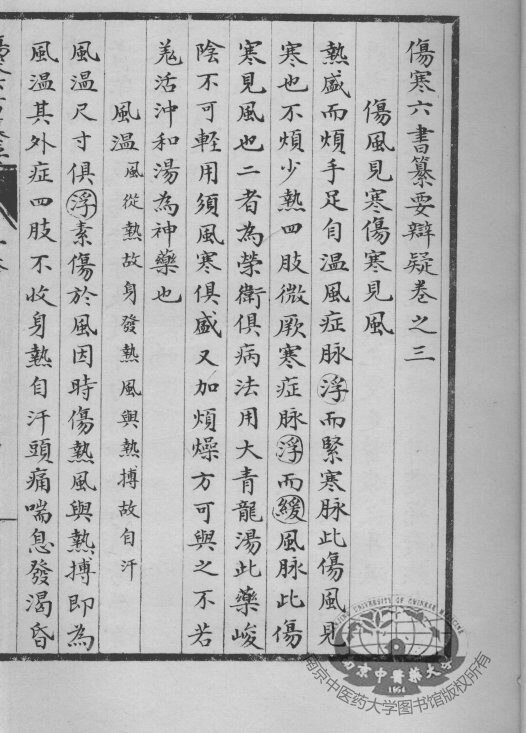 傷寒六書纂要辯疑卷之三
傷風見寒傷寒見風
熱盛而煩手足自温風症脉浮而緊寒脉此傷風見
寒也不煩少熱四肢微厥寒症脉浮而緩風脉此傷
寒見風也二者為榮衛俱病法用大青龍湯此藥峻
陰不可輕用須風寒俱盛又加煩燥方可與之不若
羗活沖和湯為神藥也
風温風從熱故身發熱風與熱搏故自汗
風温尺寸俱浮素傷於風因時傷熱風與熱搏即為
風温其外症四肢不收身熱自汗頭痛喘息發渴昏
南京中醫藥大學
1954
南京中医药大学图书馆版权所有